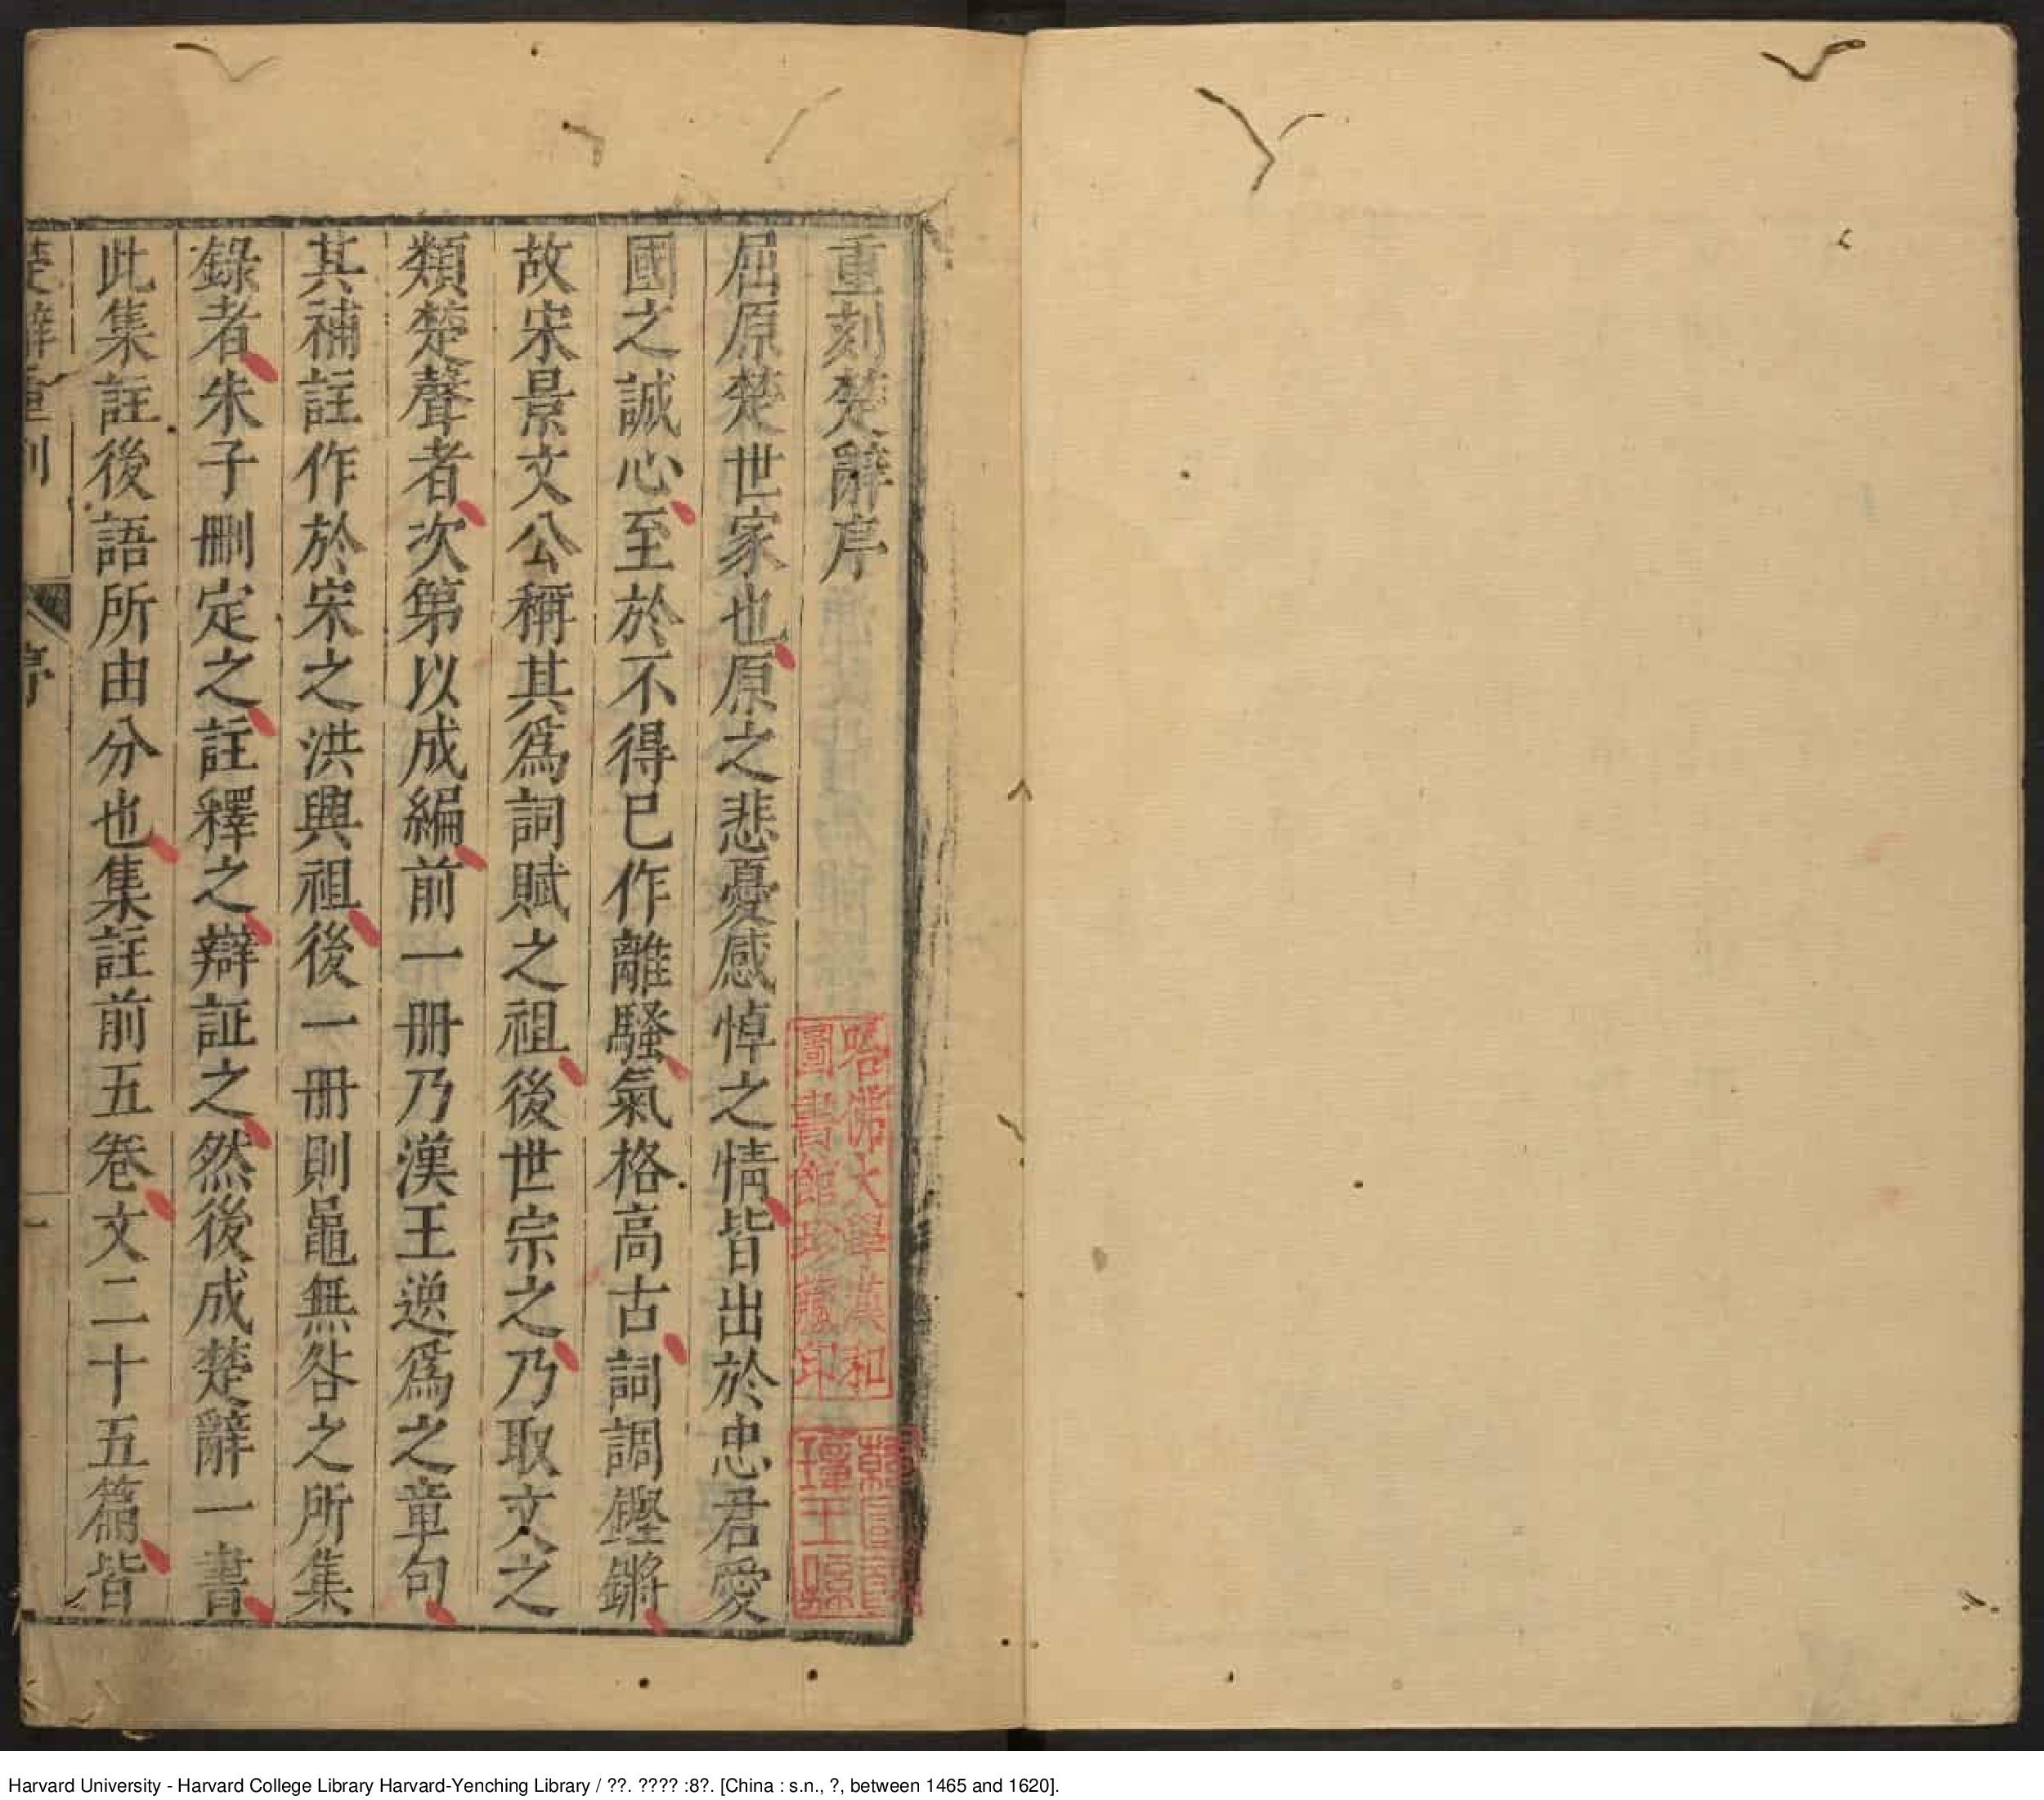 重刻楚辭序
屈原楚世家也原之悲憂感悼之情皆出於忠君愛
國之誠心至於不得已作離騷氣格高古詞調鏗鏘
故宋景文公稱其爲詞賦之祖後世宗之乃取文之
類楚聲者次第以成編前一冊乃漢王逸爲之章句
其補註作於宋之洪興祖後一冊則鼂無咎之所集
錄者朱子刪定之註釋之辯証之然後成楚辭一書
此集註後語所由分也集註前五卷文二十五篇皆
楚辭重刻
序
一
哈佛大學漢和
圖書館珍藏印
Harvard University - Harvard College Library Harvard-Yenching Library / ??. ???? :8?. [China : s.n., ?, between 1465 and 1620].